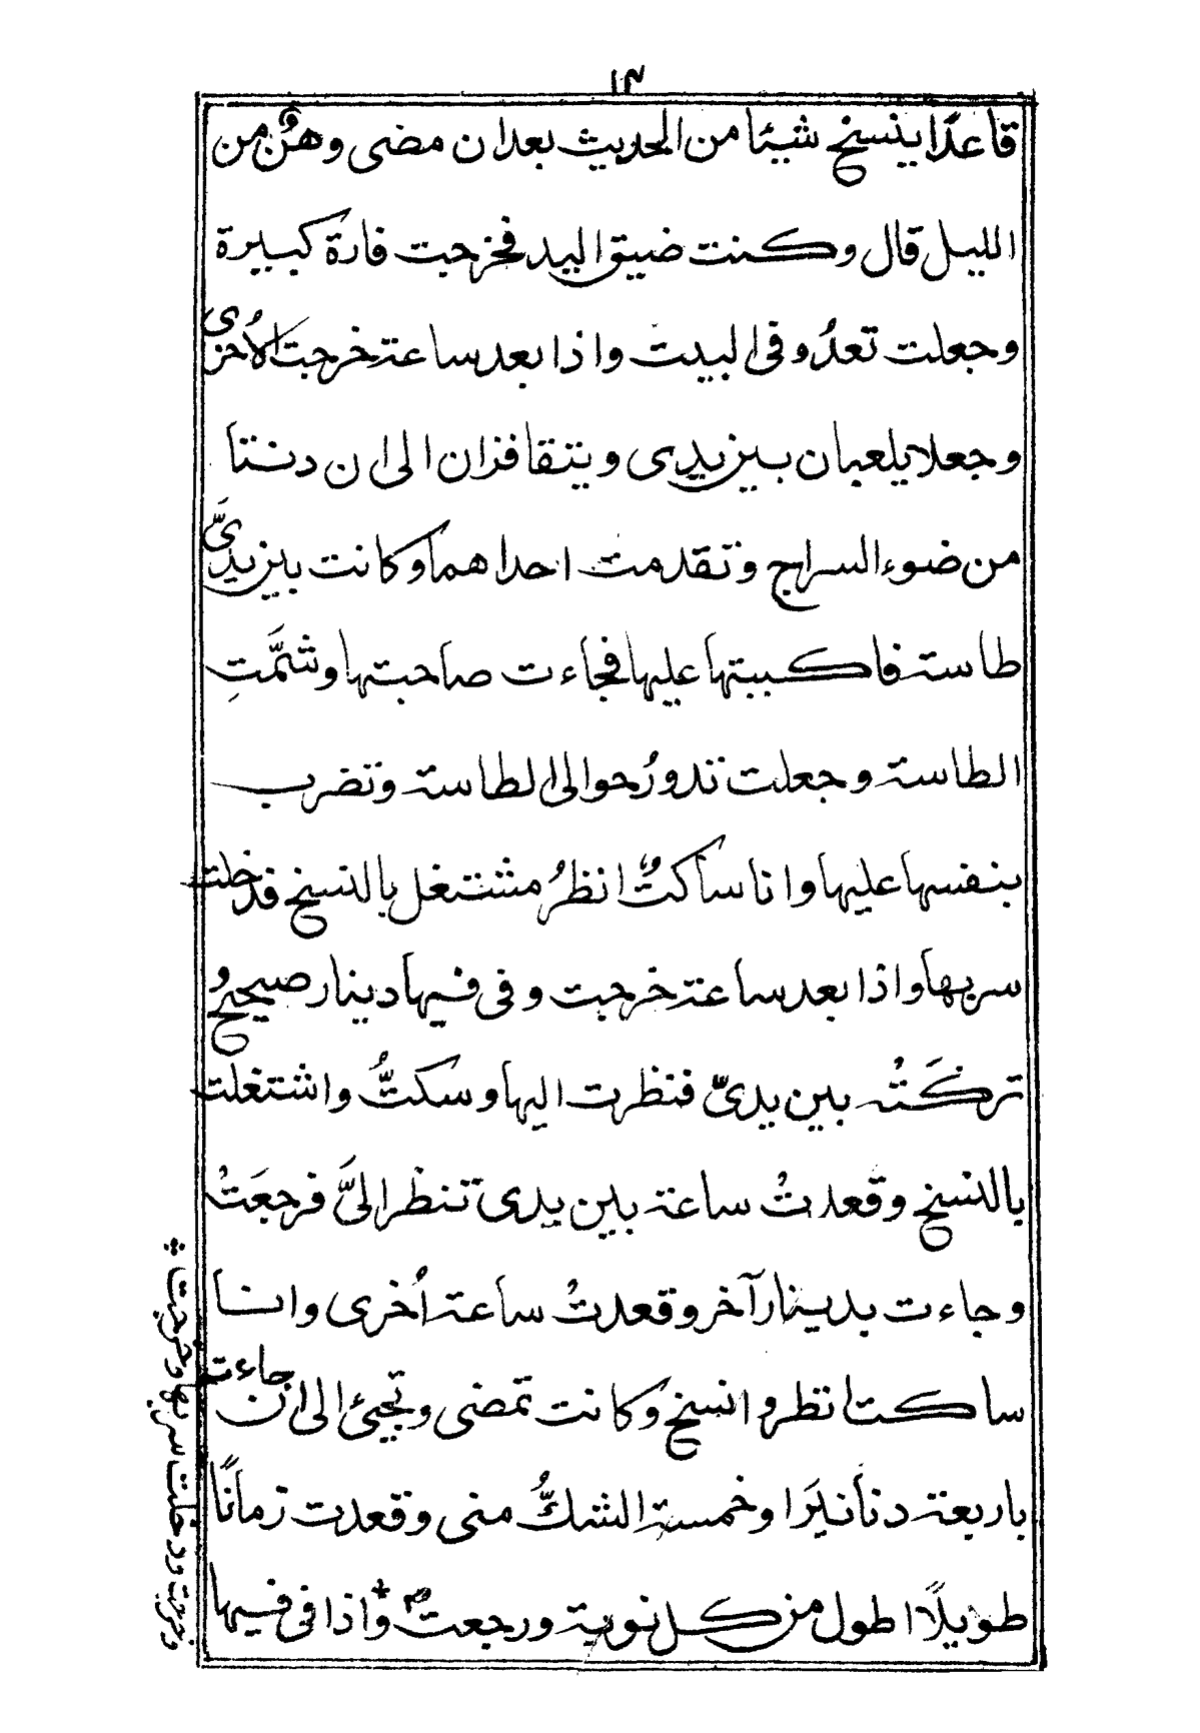 ١٣
قاعدًا ينسخ شيئا من الحديث بعد ان مضى وهنٌ من
الليل قال وكنت ضيق اليد فخرجت فارة كبيرة
وجعلت تعدُو فى البيت واذا بعد ساعة خرجت الاُخرى
وجعلا يلعبان بين يدى ويتقافزان الى ان دنتا
من ضوء السراج وتقدمت احداهما وكانت بين يدىَّ
طاسة فاكببتها عليها فجاءت صاحبتها وشمَّتِ
الطاسة وجعلت تدورُ حوالى الطاسة وتضرب
بنفسها عليها وانا ساكتٌ انظرُ مشتغل بالنسخ فدخلت
سربها واذا بعد ساعة خرجت وفى فيها دينار صحيحٌ
تركَتْه بين يدىّ فنظرت اليها وسكتُّ واشتغلت
بالنسخ وقعدتْ ساعة بين يدى تنظر الىَّ فرجعَتْ
وجاءت بدينار آخر وقعدتْ ساعة اُخرى وانا
ساكت انظر وانسخ وكانت تمضى وتجئ الى ان جاءت
باربعة دنانيرَ او خمسة الشكُّ منى وقعدت زمانًا
طويلًا اطول من كل نوبة ورجعت واذا فى فيها
ورجعت ودخلت سربها وخرجت